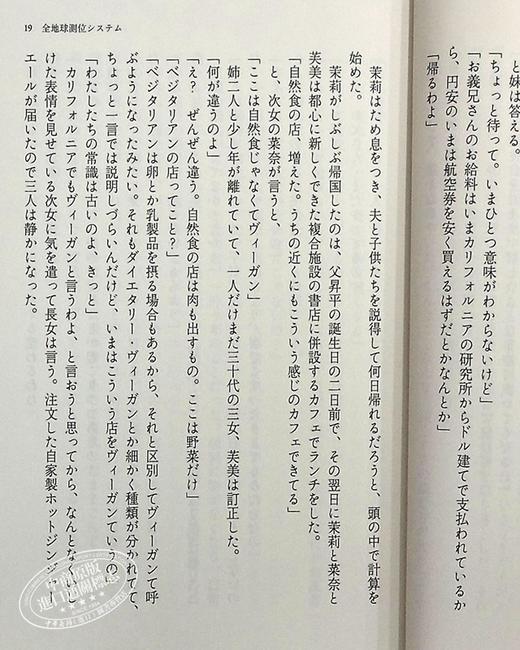 19 全地球測位システム
と妹は答える。
「ちょっと待って。いまひとつ意味がわからないけど」
「お義兄さんのお給料はいまカリフォルニアの研究所からドル建てで支払われているか
ら、円安のいまは航空券を安く買えるはずだとかなんとか」
「帰るわよ」
茉莉はため息をつき、夫と子供たちを説得して何日帰れるだろうと、頭の中で計算を
始めた。
茉莉がしぶしぶ帰国したのは、父昇平の誕生日の二日前で、その翌日に茉莉と菜奈と
芙美は都心に新しくできた複合施設の書店に併設するカフェでランチをした。
「自然食の店、増えた。うちの近くにもこういう感じのカフェできてる」
と、次女の菜奈が言うと、
「ここは自然食じゃなくてヴィーガン」
姉二人と少し年が離れていて、一人だけまだ三十代の三女、芙美は訂正した。
「何が違うのよ」
「え？　ぜんぜん違う。自然食の店は肉も出すもの。ここは野菜だけ」
「ベジタリアンの店ってこと？」
「ベジタリアンは卵とか乳製品を摂る場合もあるから、それと区別してヴィーガンて呼
ぶようになったみたい。それもダイエタリー・ヴィーガンとか細かく種類が分かれてて、
ちょっと一言では説明しづらいんだけど、いまはこういう店をヴィーガンていうの」
「わたしたちの常識は古いのよ、きっと」
カリフォルニアでもヴィーガンと言うわよ、と言おうと思ってから、なんとな
けた表情を見せている次女に気を遣って長女は言う。注文した自家製ホットジンジャー
エールが届いたので三人は静かになった。